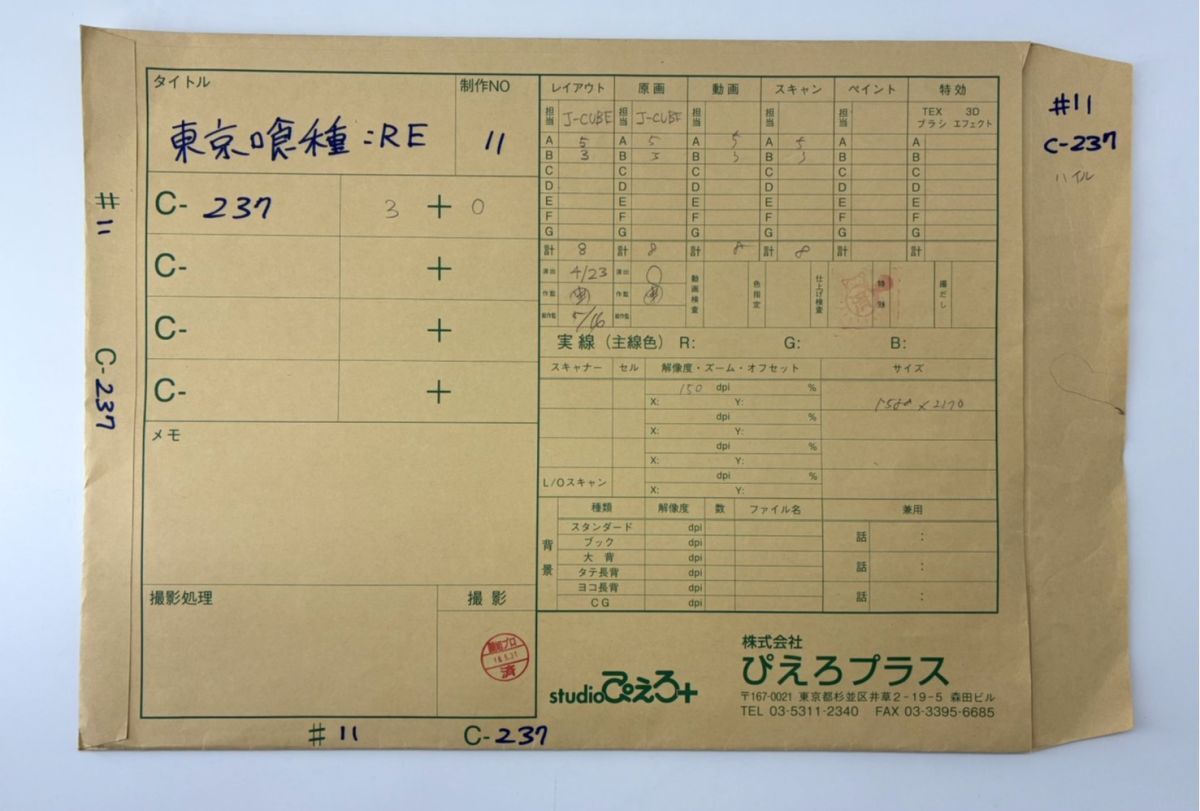 タイトル
東京喰種:RE
制作NO
11
C- 237
3 + 0
C- +
C- +
C- +
メモ
撮影処理
撮影
済
レイアウト 原画 動画 スキャン ペイント 特効
担当 J-CUBE 担当 J-CUBE 担当 担当 担当 TEX ブラシ 3D エフェクト
A 5 A 5 A 5 A 5 A A
B 3 B 3 B 3 B 3 B B
C C C C C C
D D D D D D
E E E E E E
F F F F F F
G G G G G G
計 8 計 8 計 8 計 8 計 計
演出 4/23 演出
作監 作監
総作監 5/16 総作監
動画検査
色指定
仕上げ検査
特効
撮だし
実線(主線色) R: G: B:
スキャナー セル 解像度・ズーム・オフセット サイズ
150 dpi %
X: Y:
dpi %
X: Y:
dpi %
X: Y:
L/Oスキャン dpi %
X: Y:
背景
種類 解像度 数 ファイル名 兼用
スタンダード dpi
ブック dpi
大背 dpi
タテ長背 dpi
ヨコ長背 dpi
CG dpi
話 :
話 :
話 :
studioぴえろ+
株式会社
ぴえろプラス
〒167-0021 東京都杉並区井草2-19-5 森田ビル
TEL 03-5311-2340 FAX 03-3395-6685
#11 C-237
#11 C-237
#11
C-237
ハイル